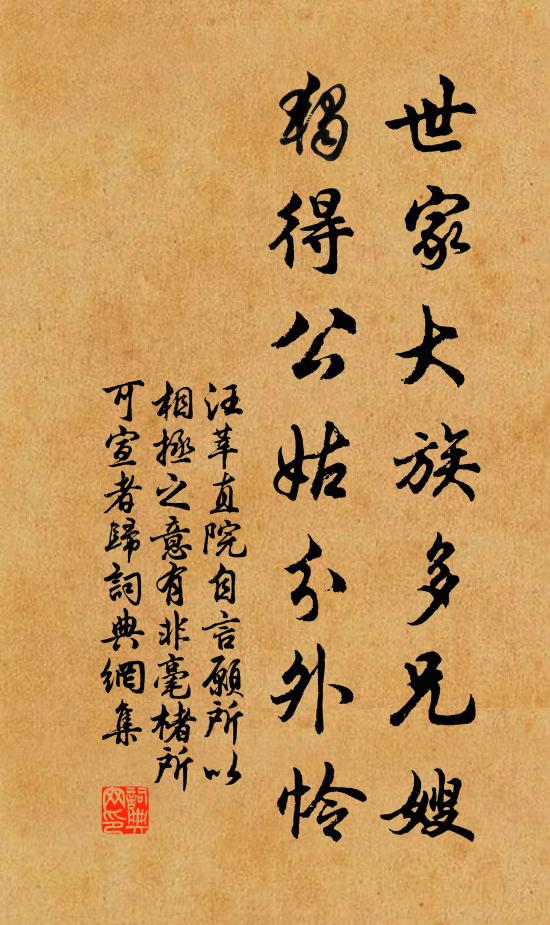 世家大族多兄嫂
獨得公姑分外怜
汪莘直院自言願所以
相拯之意有非毫楮所
可宣者歸詞典網集
詞典
网印